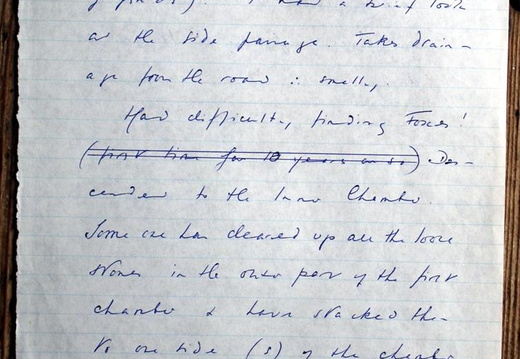 I had a brief look
at the side passage. Takes drain-
age from the road : smelly.
Had difficulty finding Foxes'
(first time for 10 years or so) Des-
cended to the Inner Chamber.
Some one has cleared up all the loose
stones in the outer part of the first
chamber & have stacked them
to one side (s) of the chamber